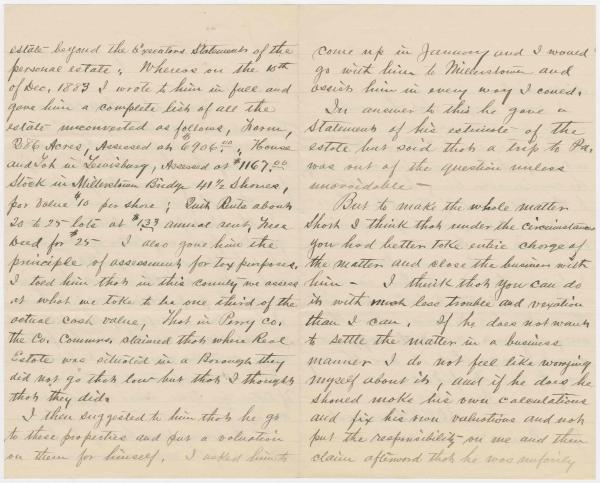 estate beyond the Executors Statements of the
personal estate. Whereas on the 10th
of Dec. 1883 I wrote to him in full and
gave him a complete list of all the
estate unconverted as follows, Farm,
386 Acres, Assessed at $6906.00, House
and Lot in Lewisburg, Assessed at $1167.00
Stock in Millerstown Bridge 41 1/2 Shares,
par value $10 per share; Quit Rents about
20 to 25 lots at $1.33 annual rent,
Deed for $25 - I also gave him the
principle of assessment for tax purposes.
I told him that in this county we assess
at what we take to be one third of the
actual cash value, That in Perry Co.
the Co. Commrs. claimed that where Real
Estate was situated in a Borough they
did not go that low but that I thought
that they did.
I then suggested to him that he go
to these properties and put a valuation
on them for himself. I asked him to
come up in January and I would
go with him to Millerstown and
assist him in every way I could.
In answer to this he gave a
Statement of his estimate of the
estate but said that a trip to Pa.
was out of the question unless
unavoidable -
But to make the whole matter
short I think that under the circumstances
you had better take entire charge of
the matter and close the business with
him - I think that you can do
it with much less trouble and vexation
than I can. If he does not want
to settle the matter in a business
manner I do not feel like worrying
myself about it, and if he does he
should make his own calculations
and fix his own valuations and not
put the responsibility on me and then
claim afterward that he was unfairly